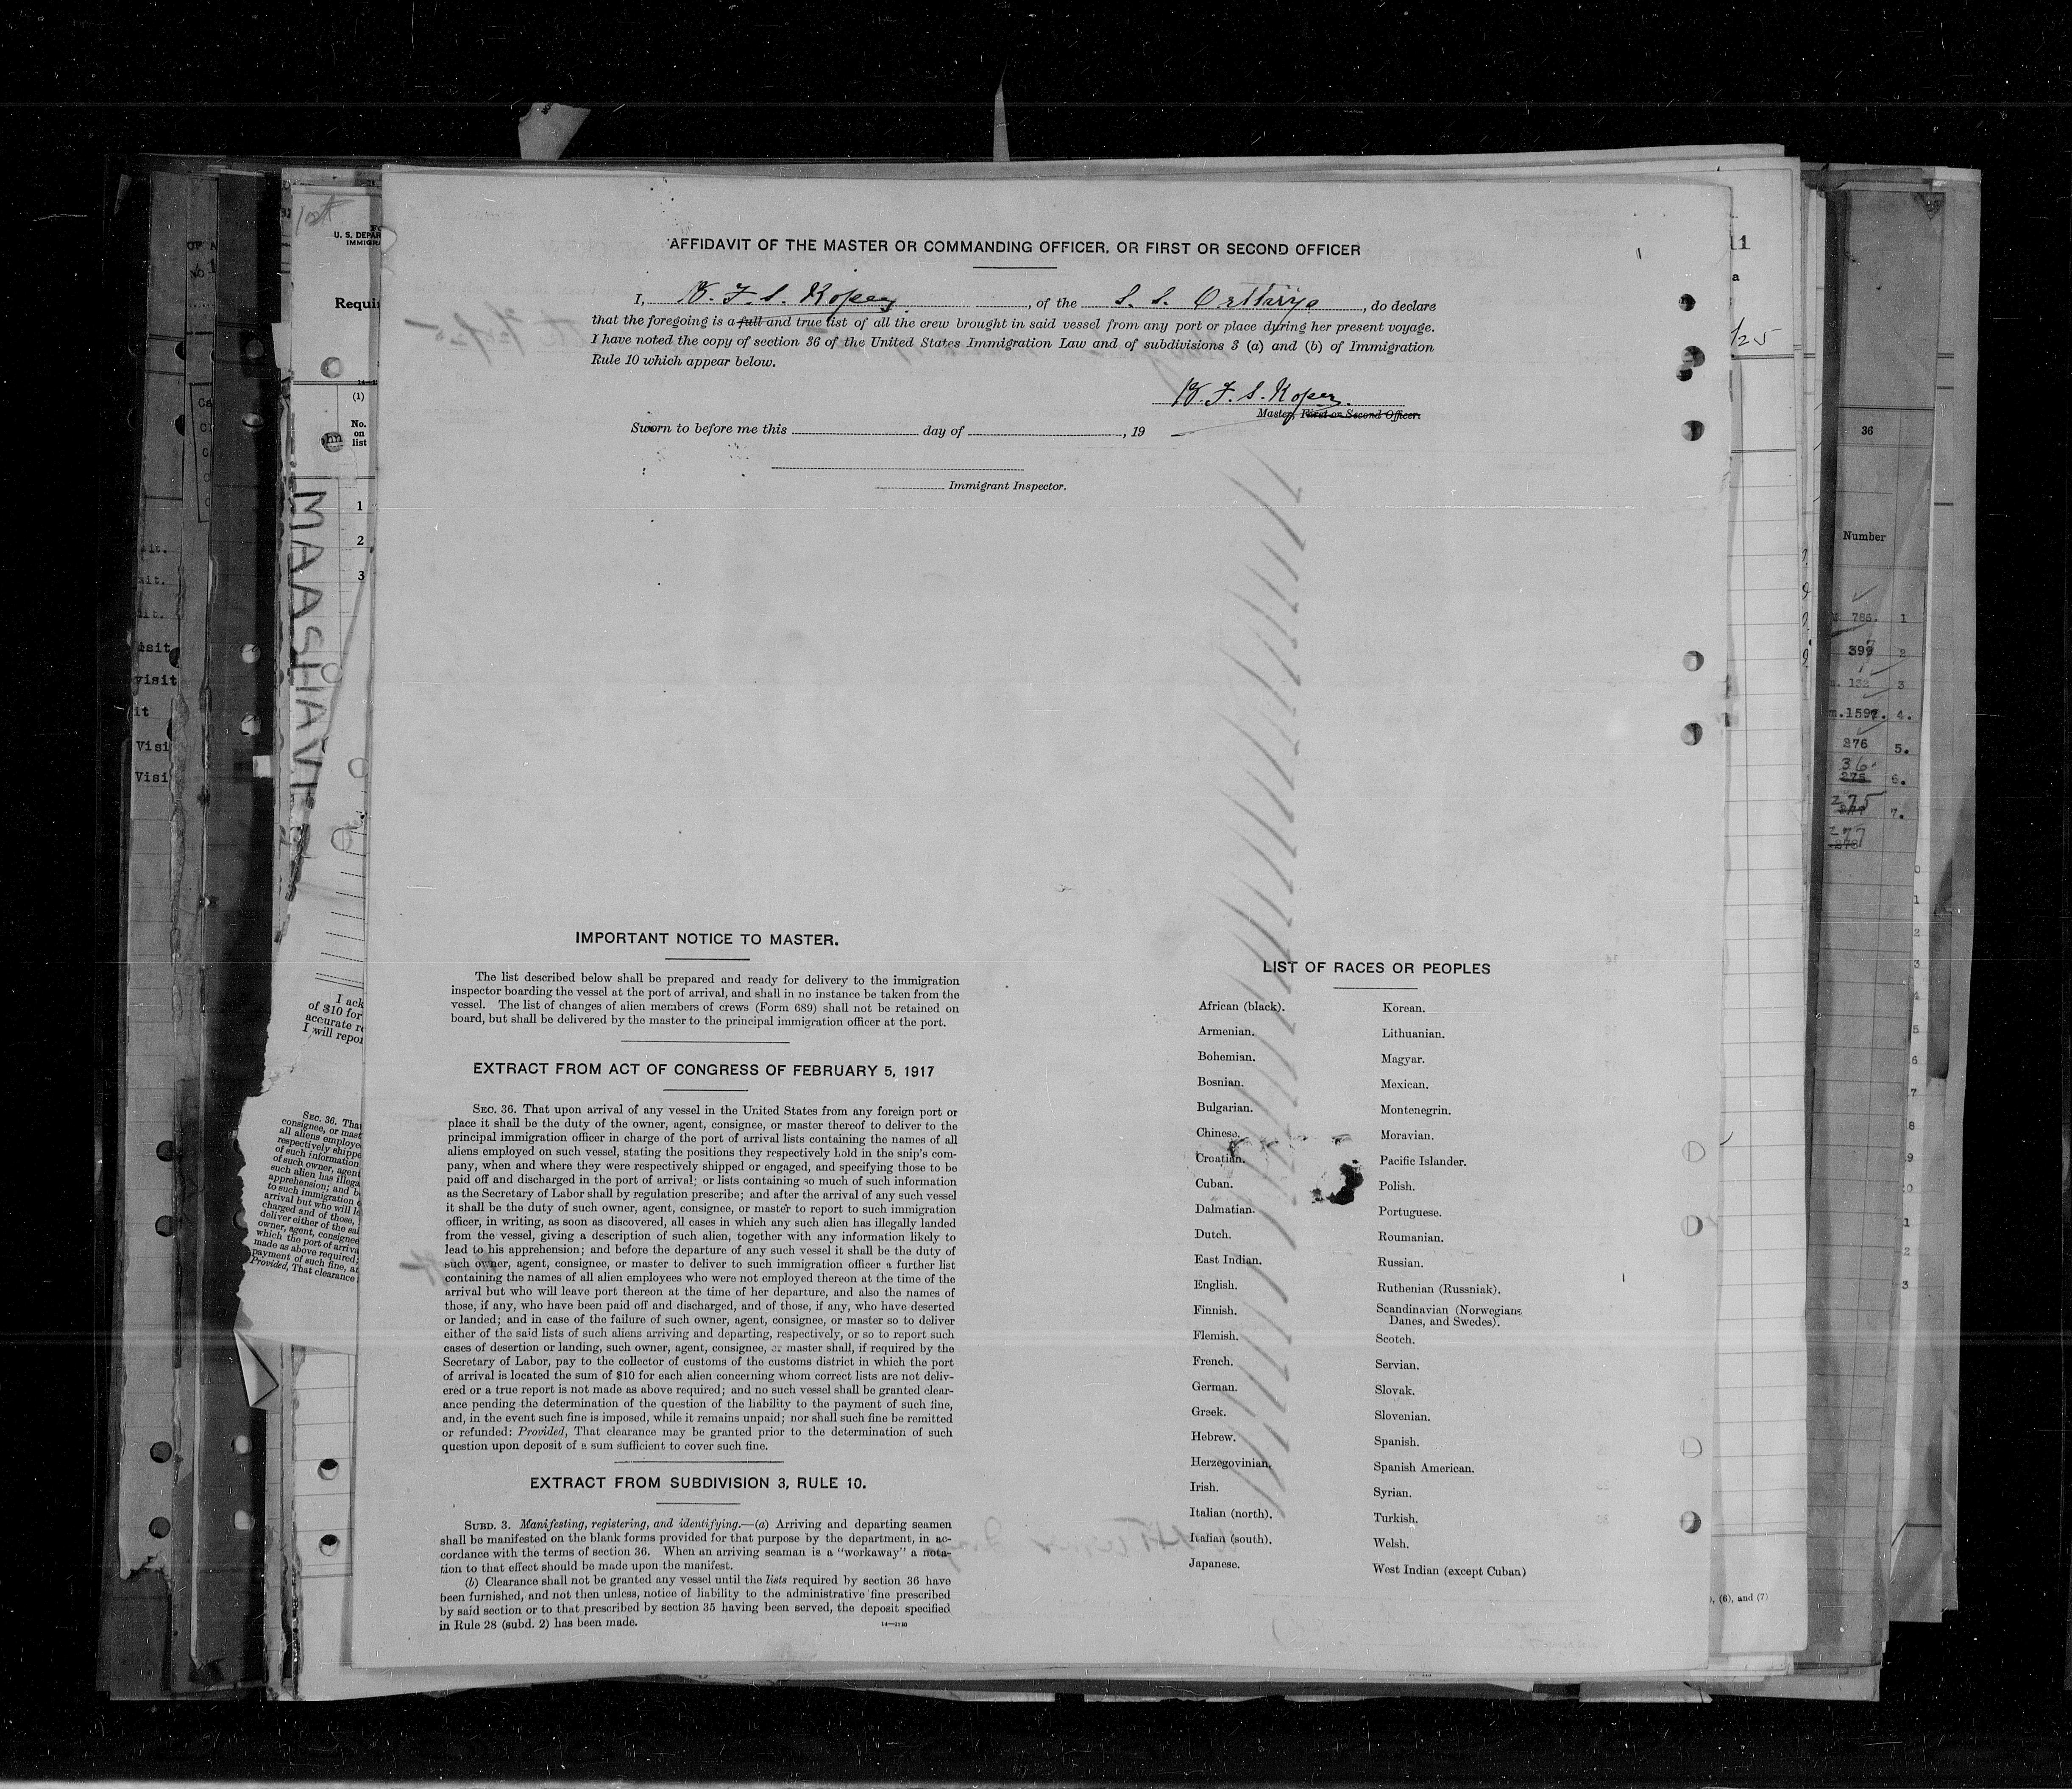 AFFIDAVIT OF THE MASTER OR COMMANDING OFFICER, OR FIRST OR SECOND OFFICER
I, F. S. Koper, of the S. S., do declare
that the foregoing is a full and true list of all the crew brought in said vessel from any port or place during her present voyage.
I have noted the copy of section 36 of the United States Immigration Law and of subdivisions 3 (a) and (b) of Immigration
Rule 10 which appear below.
F. S. Koper.
Master, First or Second Officer.
Sworn to before me this day of , 19
Immigrant Inspector.
IMPORTANT NOTICE TO MASTER.
The list described below shall be prepared and ready for delivery to the immigration
inspector boarding the vessel at the port of arrival, and shall in no instance be taken from the
vessel. The list of changes of alien members of crews (Form 689) shall not be retained on
board, but shall be delivered by the master to the principal immigration officer at the port.
EXTRACT FROM ACT OF CONGRESS OF FEBRUARY 5, 1917
SEC. 36. That upon arrival of any vessel in the United States from any foreign port or
place it shall be the duty of the owner, agent, consignee, or master thereof to deliver to the
principal immigration officer in charge of the port of arrival lists containing the names of all
aliens employed on such vessel, stating the positions they respectively hold in the ship's com-
pany, when and where they were respectively shipped or engaged, and specifying those to be
paid off and discharged in the port of arrival; or lists containing so much of such information
as the Secretary of Labor shall by regulation prescribe; and after the arrival of any such vessel
it shall be the duty of such owner, agent, consignee, or master to report to such immigration
officer, in writing, as soon as discovered, all cases in which any such alien has illegally landed
from the vessel, giving a description of such alien, together with any information likely to
lead to his apprehension; and before the departure of any such vessel it shall be the duty of
such owner, agent, consignee, or master to deliver to such immigration officer a further list
containing the names of all alien employees who were not employed thereon at the time of the
arrival but who will leave port thereon at the time of her departure, and also the names of
those, if any, who have been paid off and discharged, and of those, if any, who have deserted
or landed; and in case of the failure of such owner, agent, consignee, or master so to deliver
either of the said lists of such aliens arriving and departing, respectively, or so to report such
cases of desertion or landing, such owner, agent, consignee, or master shall, if required by the
Secretary of Labor, pay to the collector of customs of the customs district in which the port
of arrival is located the sum of $10 for each alien concerning whom correct lists are not deliv-
ered or a true report is not made as above required; and no such vessel shall be granted clear-
ance pending the determination of the question of the liability to the payment of such fine,
and, in the event such fine is imposed, while it remains unpaid; nor shall such fine be remitted
or refunded: Provided, That clearance may be granted prior to the determination of such
question upon deposit of a sum sufficient to cover such fine.
EXTRACT FROM SUBDIVISION 3, RULE 10.
SUBD. 3. Manifesting, registering, and identifying.—(a) Arriving and departing seamen
shall be manifested on the blank forms provided for that purpose by the department, in ac-
cordance with the terms of section 36. When an arriving seaman is a "workaway" a nota-
tion to that effect should be made upon the manifest.
(b) Clearance shall not be granted any vessel until the lists required by section 36 have
been furnished, and not then unless, notice of liability to the administrative fine prescribed
by said section or to that prescribed by section 35 having been served, the deposit specified
in Rule 28 (subd. 2) has been made.
LIST OF RACES OR PEOPLES
African (black).
Armenian.
Bohemian.
Bosnian.
Bulgarian.
Chinese.
Croatian.
Cuban.
Dalmatian.
Dutch.
East Indian.
English.
Finnish.
Flemish.
French.
German.
Greek.
Hebrew.
Herzegovinian.
Irish.
Italian (north).
Italian (south).
Japanese.
Korean.
Lithuanian.
Magyar.
Mexican.
Montenegrin.
Moravian.
Pacific Islander.
Polish.
Portuguese.
Roumanian.
Russian.
Ruthenian (Russniak).
Scandinavian (Norwegians,
Danes, and Swedes).
Scotch.
Servian.
Slovak.
Slovenian.
Spanish.
Spanish American.
Syrian.
Turkish.
Welsh.
West Indian (except Cuban)
U. S. DEPAR
IMMIGRA
Requir
(1)
No.
on
list
1
2
3
I ack
of $10 for
accurate re
I will repor
36
Number
786. 1
399 2
132 3
1597. 4.
276 5.
36. 6.
275 7.
277